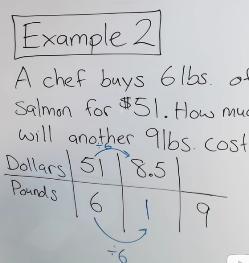 Example 2
A chef buys 6 lbs. of
Salmon for $51. How
will another 9 lbs. cost
Dollars 51 8.5
Pounds 6 1 9
÷6